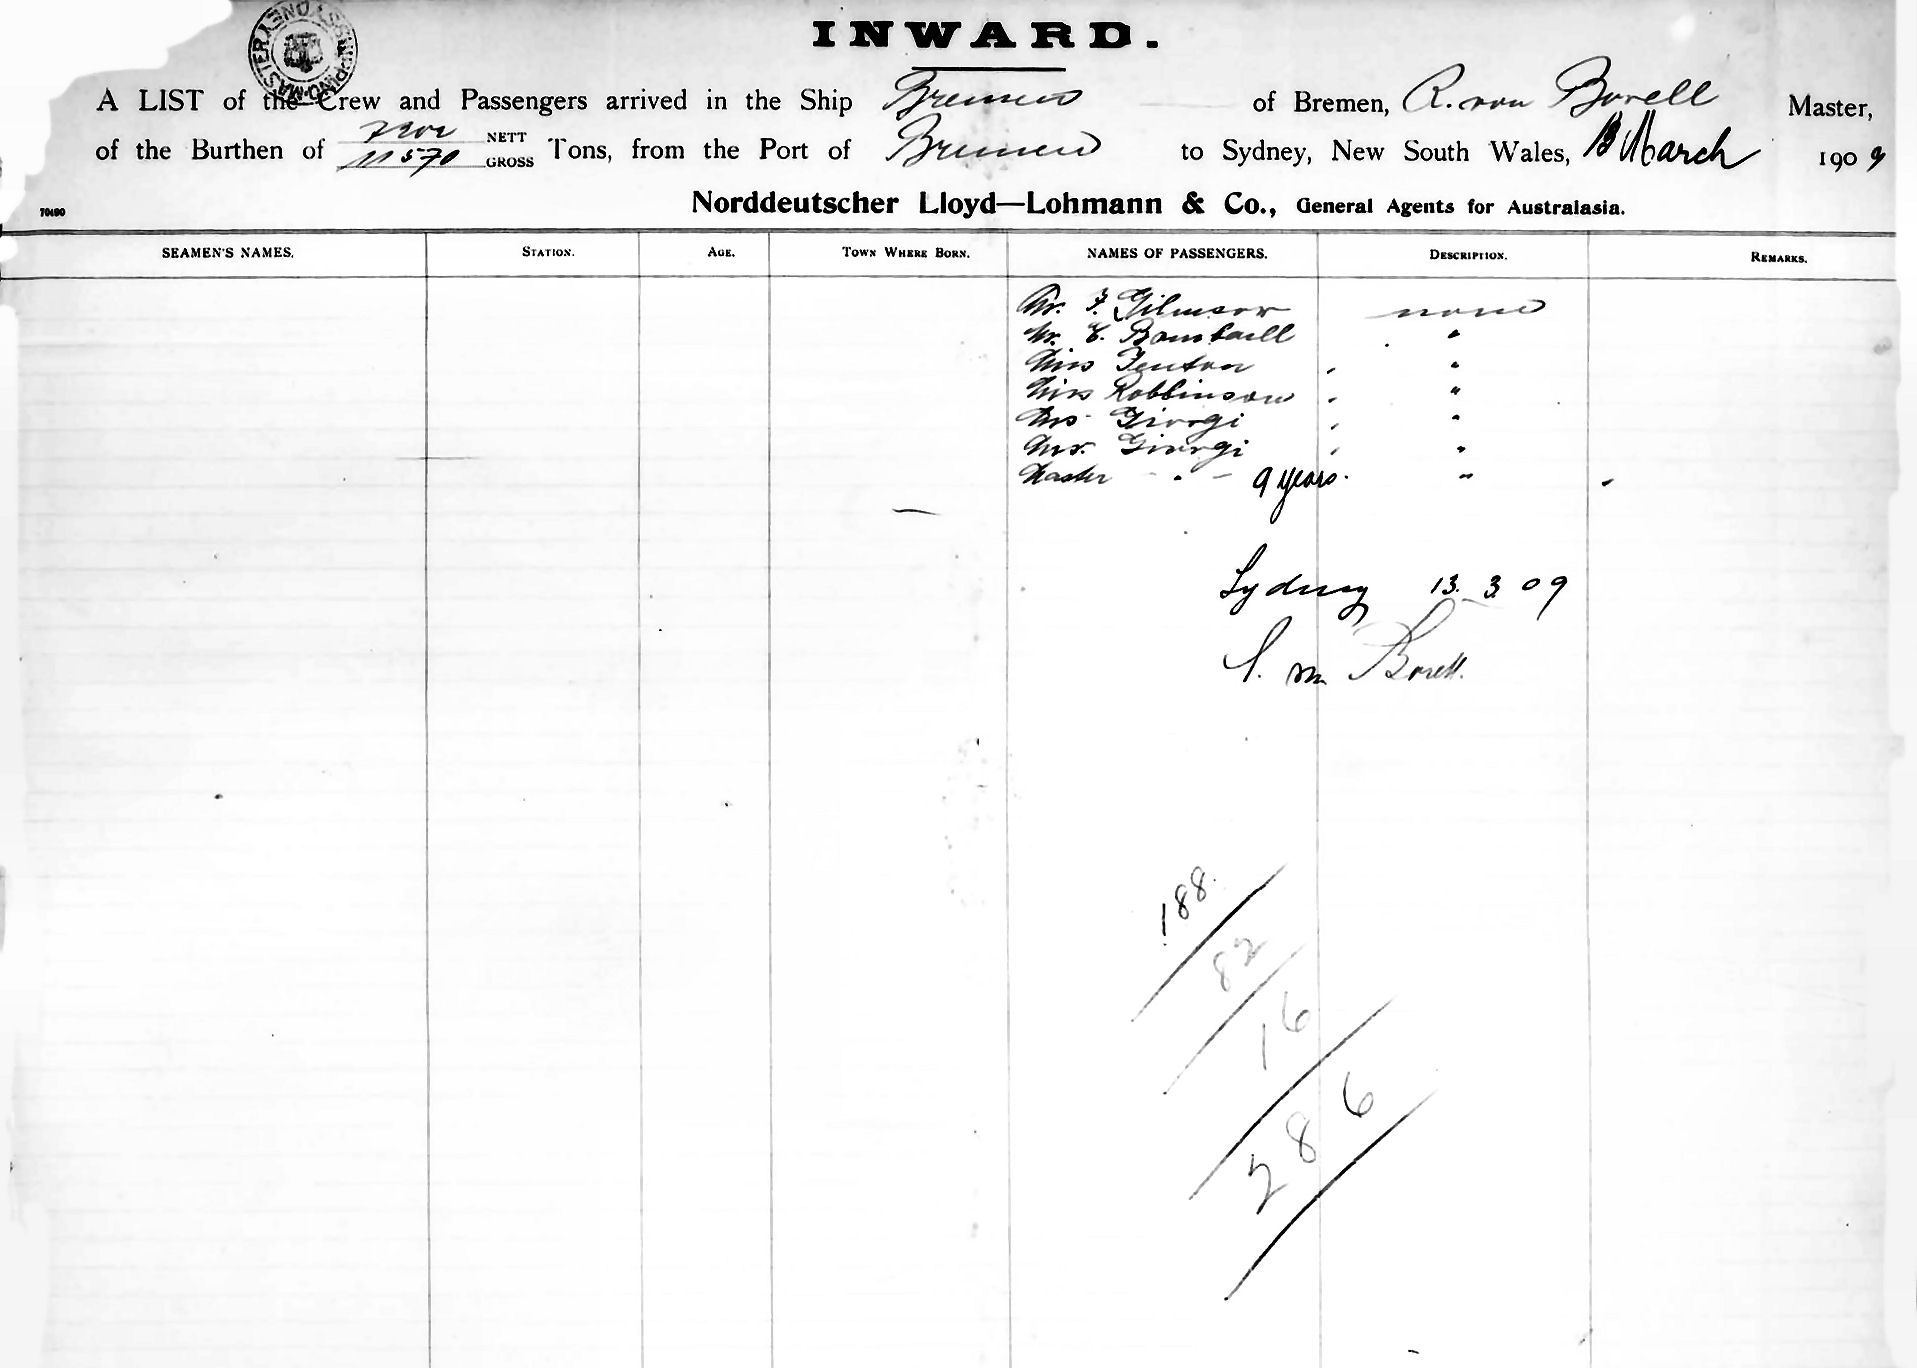 SHIPPING MASTER SYDNEY
INWARD.
A LIST of the Crew and Passengers arrived in the Ship Bremen of Bremen, R. von Borell Master,
of the Burthen of 7200 NETT 11570 GROSS Tons, from the Port of Bremen to Sydney, New South Wales, 13 March 1909
70490
Norddeutscher Lloyd—Lohmann & Co., General Agents for Australasia.
SEAMEN'S NAMES. STATION. AGE. TOWN WHERE BORN. NAMES OF PASSENGERS. DESCRIPTION. REMARKS.
Mr. F. none
Mr. E. "
Miss Fenton "
Miss Robbinson "
Mrs Giorgi "
Mr. Giorgi "
Master - " - 9 years. "
Sydney 13.3.09
Borell.
188.
82
16
286